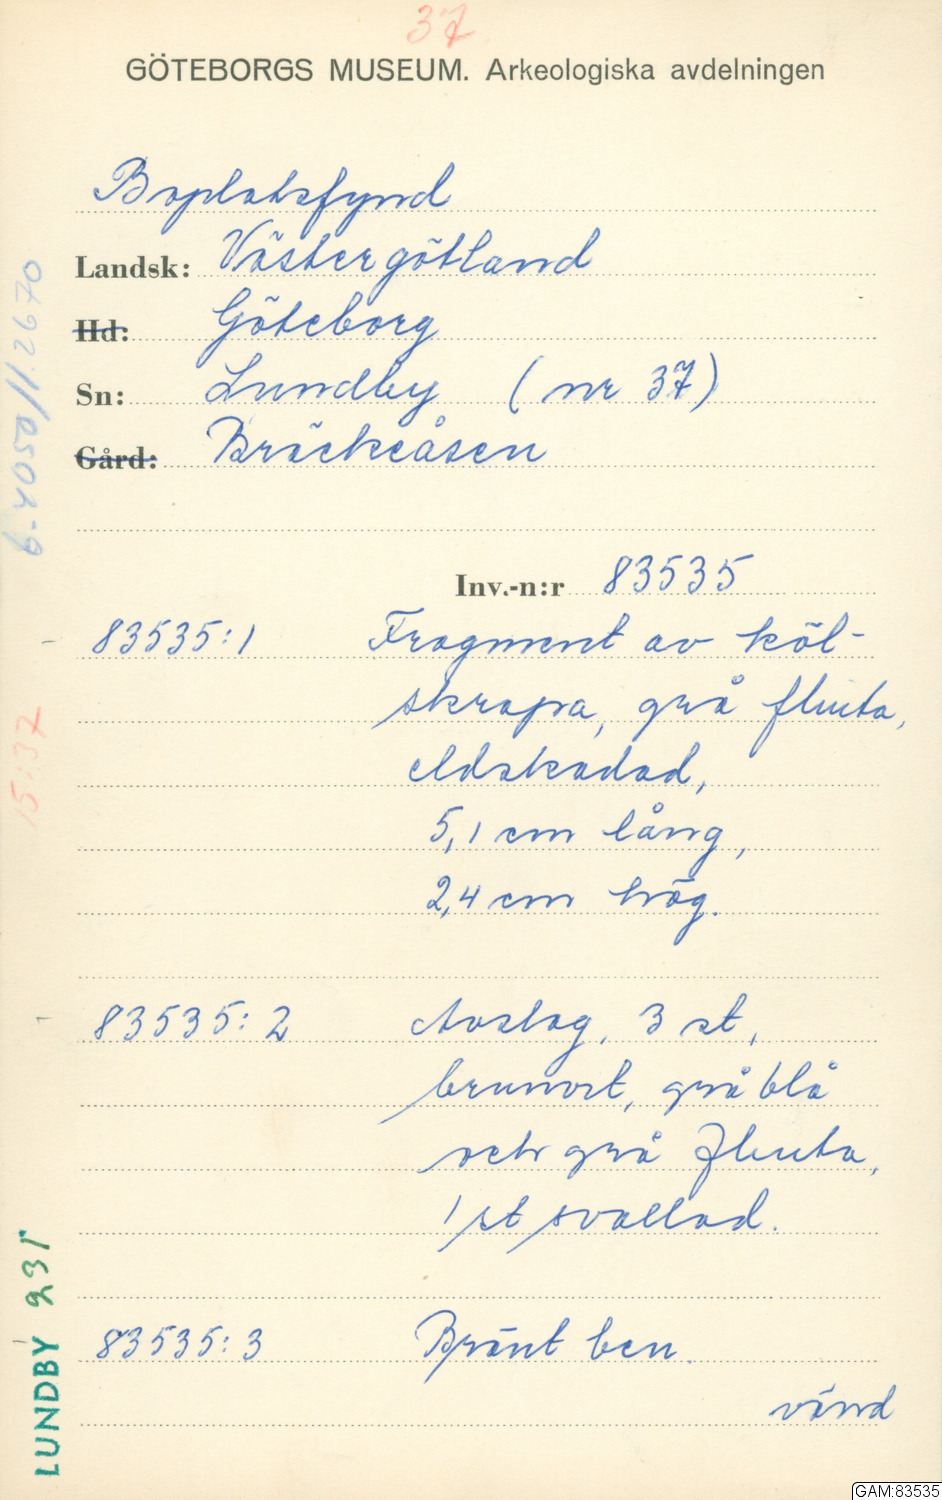 37
GÖTEBORGS MUSEUM. Arkeologiska avdelningen
Boplatsfynd
Landsk: Västergötland
Hd: Göteborg
Sn: Lundby (nr 37)
Gård: Bräckeåsen
Inv.-n:r 83535
83535:1 Fragment av köl-
skrapa, grå flinta,
eldskadad,
5,1 cm lång,
2,4 cm hög.
83535:2 Avslag, 3 st,
brunvit, gråblå
och grå flinta,
1 st svallad.
83535:3 Bränt ben.
vänd
15:37
LUNDBY 231
GAM:83535